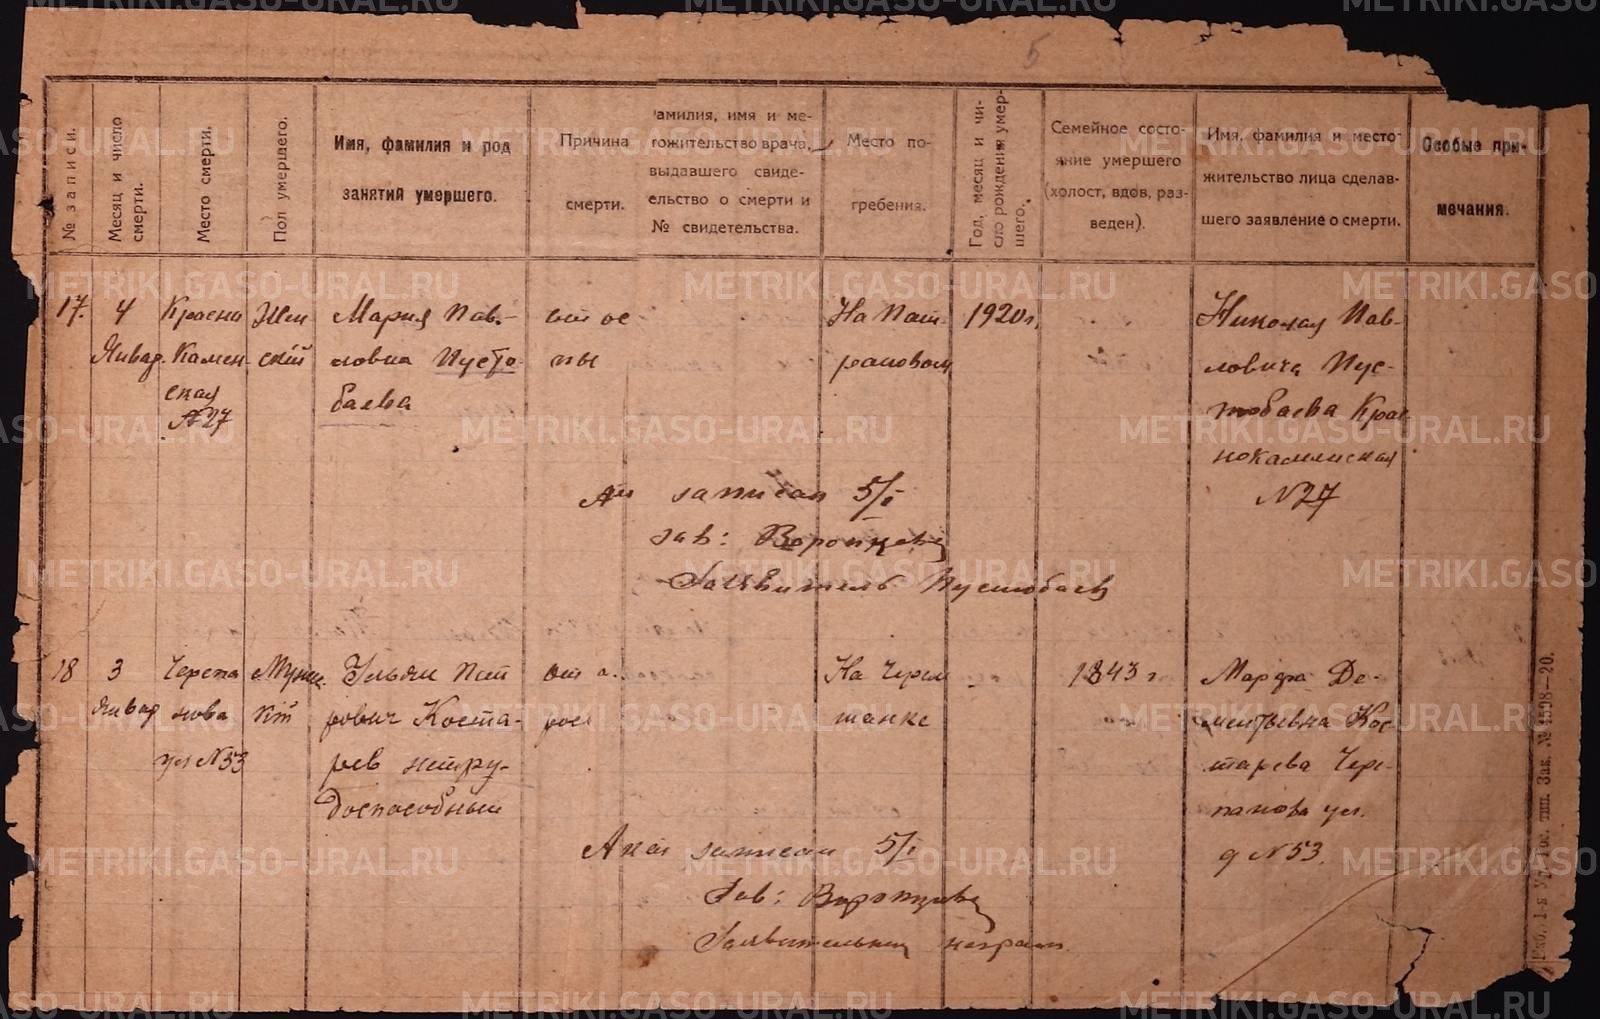 5
№ записи.
Месяц и число смерти.
Место смерти.
Пол умершего.
Имя, фамилия и род занятий умершего.
Причина смерти.
амилия, имя и ме-
тожительство врача,
выдавшего свиде-
ельство о смерти и
№ свидетельства.
Место по-
гребения.
Год, месяц и чи-
сло рождения умер-
шего.
Семейное состо-
яние умершего
(холост, вдов, раз-
веден).
Имя, фамилия и место-
жительство лица сделав-
шего заявление о смерти.
Особые при-
мечания.
17.
4
Январ.
Красно
Камен-
ская
№27
Жен
ский
Мария Пав-
ловна Пусто-
баева
от ос
пы
На
1920 г.
Николая Пав-
ловича Пус-
тобаева Крас
нокаменская
№27
записан 5/I
Зав: Воронцова
Заявитель Пустобаев
18
3
Январ
Черепа
нова
ул №53
Мужс.
Ульян Пет
рович Коста-
рев нетру-
доспособный
от
На Черем
шанке
1843 г
Марфа Де-
ментьевна Кос-
тарева Чере-
панова ул.
д №53.
Акт записан 5/I
Зав: Воронцова
Заявительница неграм.
1-я Ур. Гос. тип. Зак. № 4598—20.
METRIKI.GASO-URAL.RU